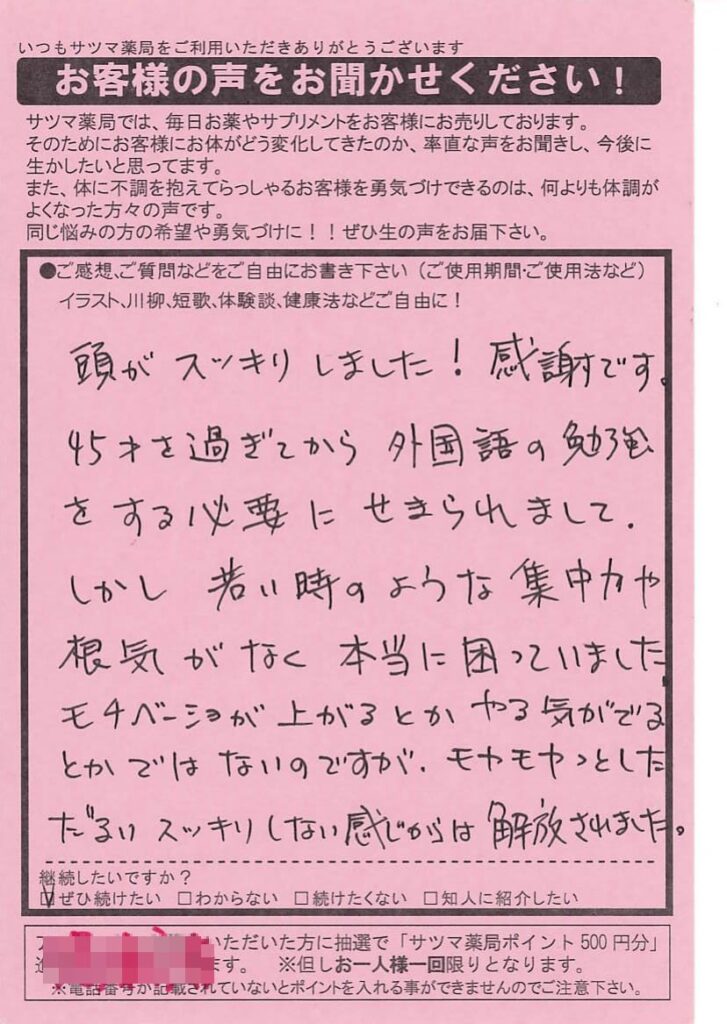 いつもサツマ薬局をご利用いただきありがとうございます
お客様の声をお聞かせください！
サツマ薬局では、毎日お薬やサプリメントをお客様にお売りしております。
そのためにお客様にお体がどう変化してきたのか、率直な声をお聞きし、今後に
生かしたいと思ってます。
また、体に不調を抱えてらっしゃるお客様を勇気づけできるのは、何よりも体調が
よくなった方々の声です。
同じ悩みの方の希望や勇気づけに！！ぜひ生の声をお届下さい。
●ご感想、ご質問などをご自由にお書き下さい（ご使用期間・ご使用法など）
イラスト、川柳、短歌、体験談、健康法などご自由に！
頭がスッキリしました！感謝です。
45才を過ぎてから外国語の勉強
をする必要にせまられまして．
しかし若い時のような集中力や
根気がなく本当に困っていました。
モチベーショが上がるとかやる気がでる
とかではないのですが．モヤモヤっとした
だるいスッキリしない感じからは解放されました。
継続したいですか？
☑ぜひ続けたい □わからない □続けたくない □知人に紹介したい
いただいた方に抽選で「サツマ薬局ポイント500円分」
ます。 ※但しお一人様一回限りとなります。
※電話番号が記載されていないとポイントを入れる事ができませんのでご注意下さい。